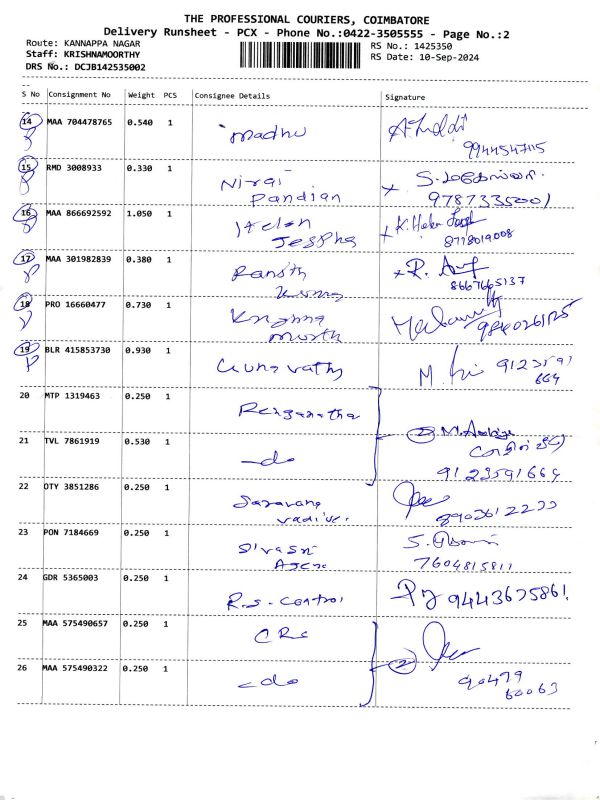 THE PROFESSIONAL COURIERS, COIMBATORE
Delivery Runsheet - PCX - Phone No.:0422-3505555 - Page No.:2
Route: KANNAPPA NAGAR
Staff: KRISHNAMOORTHY
DRS No.: DCJB142535002
RS No.: 1425350
RS Date: 10-Sep-2024
S No Consignment No Weight PCS Consignee Details Signature
14 MAA 704478765 0.540 1 madhu
9944547115
15 RMD 3008933 0.330 1 Niraj Pandian
9787335001
16 MAA 866692592 1.050 1 Helen
K. Helen
8778019008
17 MAA 301982839 0.380 1 Ranjith Kumar
R.
8667665137
18 PRO 16660477 0.730 1 Krishna
9840261125
19 BLR 415853730 0.930 1 Gunavathy
M. 9123591
664
20 MTP 1319463 0.250 1 Renganatha
21 TVL 7861919 0.530 1 -do
2 M.
9123591664
22 OTY 3851286 0.250 1 Saravana vadivel
8903612233
23 PON 7184669 0.250 1 Sivasri
S.
7604815811
24 GDR 5365003 0.250 1 R.S. Control
9443675861
25 MAA 575490657 0.250 1 CRC
26 MAA 575490322 0.250 1 -do
2
90479
60063